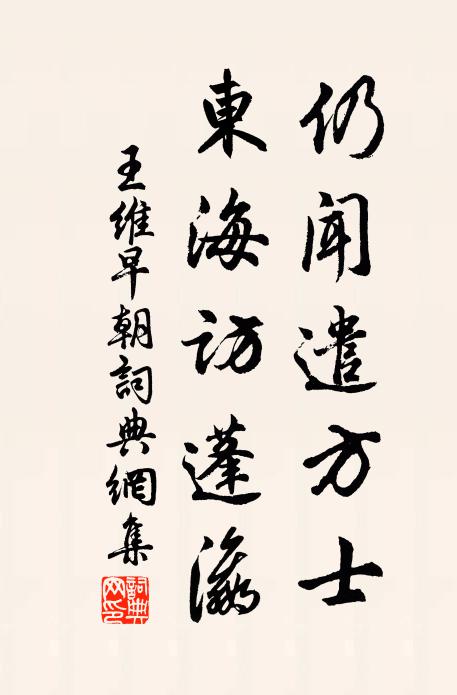 仍闻遣方士
東海訪蓬瀛
王維早朝詞典網集
詞典網印